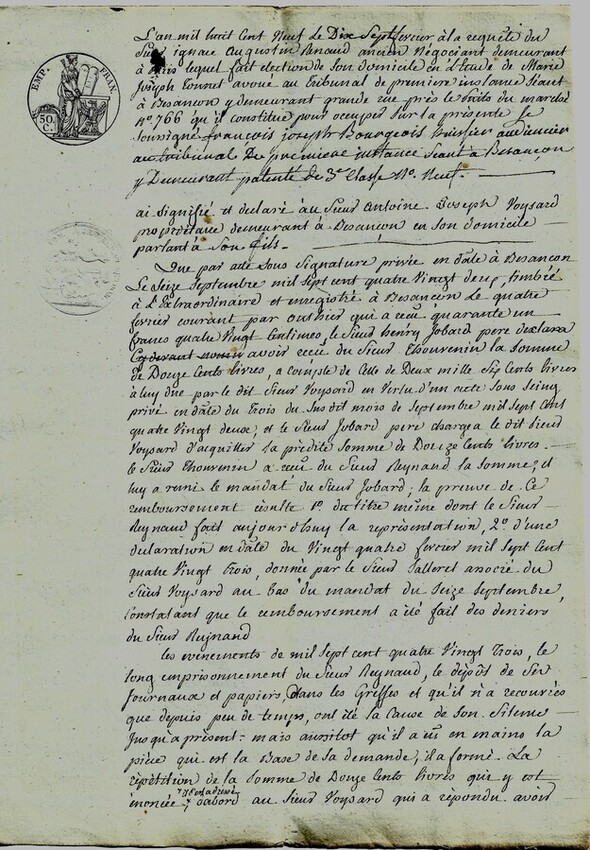 EMP. FRAN.
50. C.
L'an mil huit Cent Neuf Le Dix Sept fevrier à la requête du
Sieur ignace Augustin Renaud ancien Négociant demeurant
à Paris lequel fait election de Son domicile en L'Etude de Marie
Joseph Tonnet avoué au Tribunal de premiere instance Séant
à Besançon y demeurant grande rue près le Puits du marché
N° 766 qu'il constitue pour occuper Sur la présente Je
Soussigné françois joseph Bourgeois huissier audiencier
au tribunal De première instance Séant à Besançon
y Demeurant patenté de 3e Classe N°. Neuf.
ai Signifié et declaré au Sieur Antoine Joseph Voysard
propriétaire demeurant à Besancon en Son domicile
parlant à Son fils.
Que par acte Sous Signature privée en date à Besancon
Le Seize Septembre mil Sept cent quatre Vingt deux, timbré
à L'Extraordinaire et enregistré à Besançon Le quatre
fevrier courant par outhier qui a recu quarante un
francs quatre Vingt Centimes, le Sieur henry Jobard pere declara
avoir recu du Sieur Thouvenin la Somme
de Douze Cents livres, a compte de Celle de Deux mille Six Cents livres
à luy due par le dit Sieur Voysard en Vertu d'un acte Sous Seing
privé en date du Trois du Sus dit mois de Septembre mil Sept Cent
quatre Vingt deux; et le Sieur Jobard pere chargea le dit Sieur
Voysard d'acquitter la prédite Somme de Douze Cents livres.
Le Sieur Thouvenin a recu du Sieur Reynaud la Somme, et
luy a remi le mandat du Sieur Jobard; la preuve de Ce
remboursement résulte 1° du titre même dont le Sieur
Reynaud fait aujourd'huy la représentation, 2° d'une
declaration en date du Vingt quatre fevrier mil Sept Cent
quatre Vingt Trois, donnée par le Sieur Talleret associé du
Sieur Voysard au bas du mandat du Seize Septembre,
Constatant que le remboursement a été fait des deniers
du Sieur Reynaud
Les evenements de mil Sept cent quatre Vingt Trois, le
long emprisonnement du Sieur Reynaud, le dépôt de Ses
Journaux et papiers, dans les Greffes et qu'il n'a recouvrés
que depuis peu de temps, ont été la Cause de Son Silence
Jusqu'a présent: mais aussitot qu'il a eu en mains la
pièce qui est la Base de Sa demande, il a formé La
répétition de la Somme de Douze Cents livres qui y est
énoncée, dabord au Sieur Voysard qui a répondu avoir